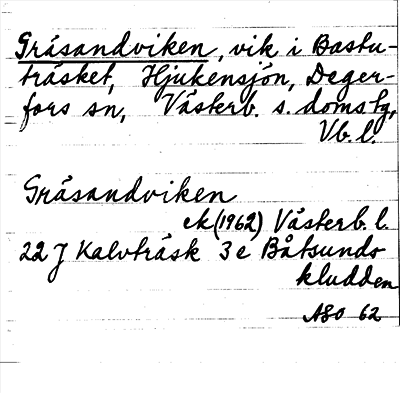 Gråsandviken, vik i Bastu-
träsket, Hjukensjön, Deger-
fors sn, Västerb. s. doms tg,
Vb. l.
Gråsandviken
ek (1962) Västerb. l.
22 J Kalvträsk 3 e Båtsunds
kludden
ASO 62